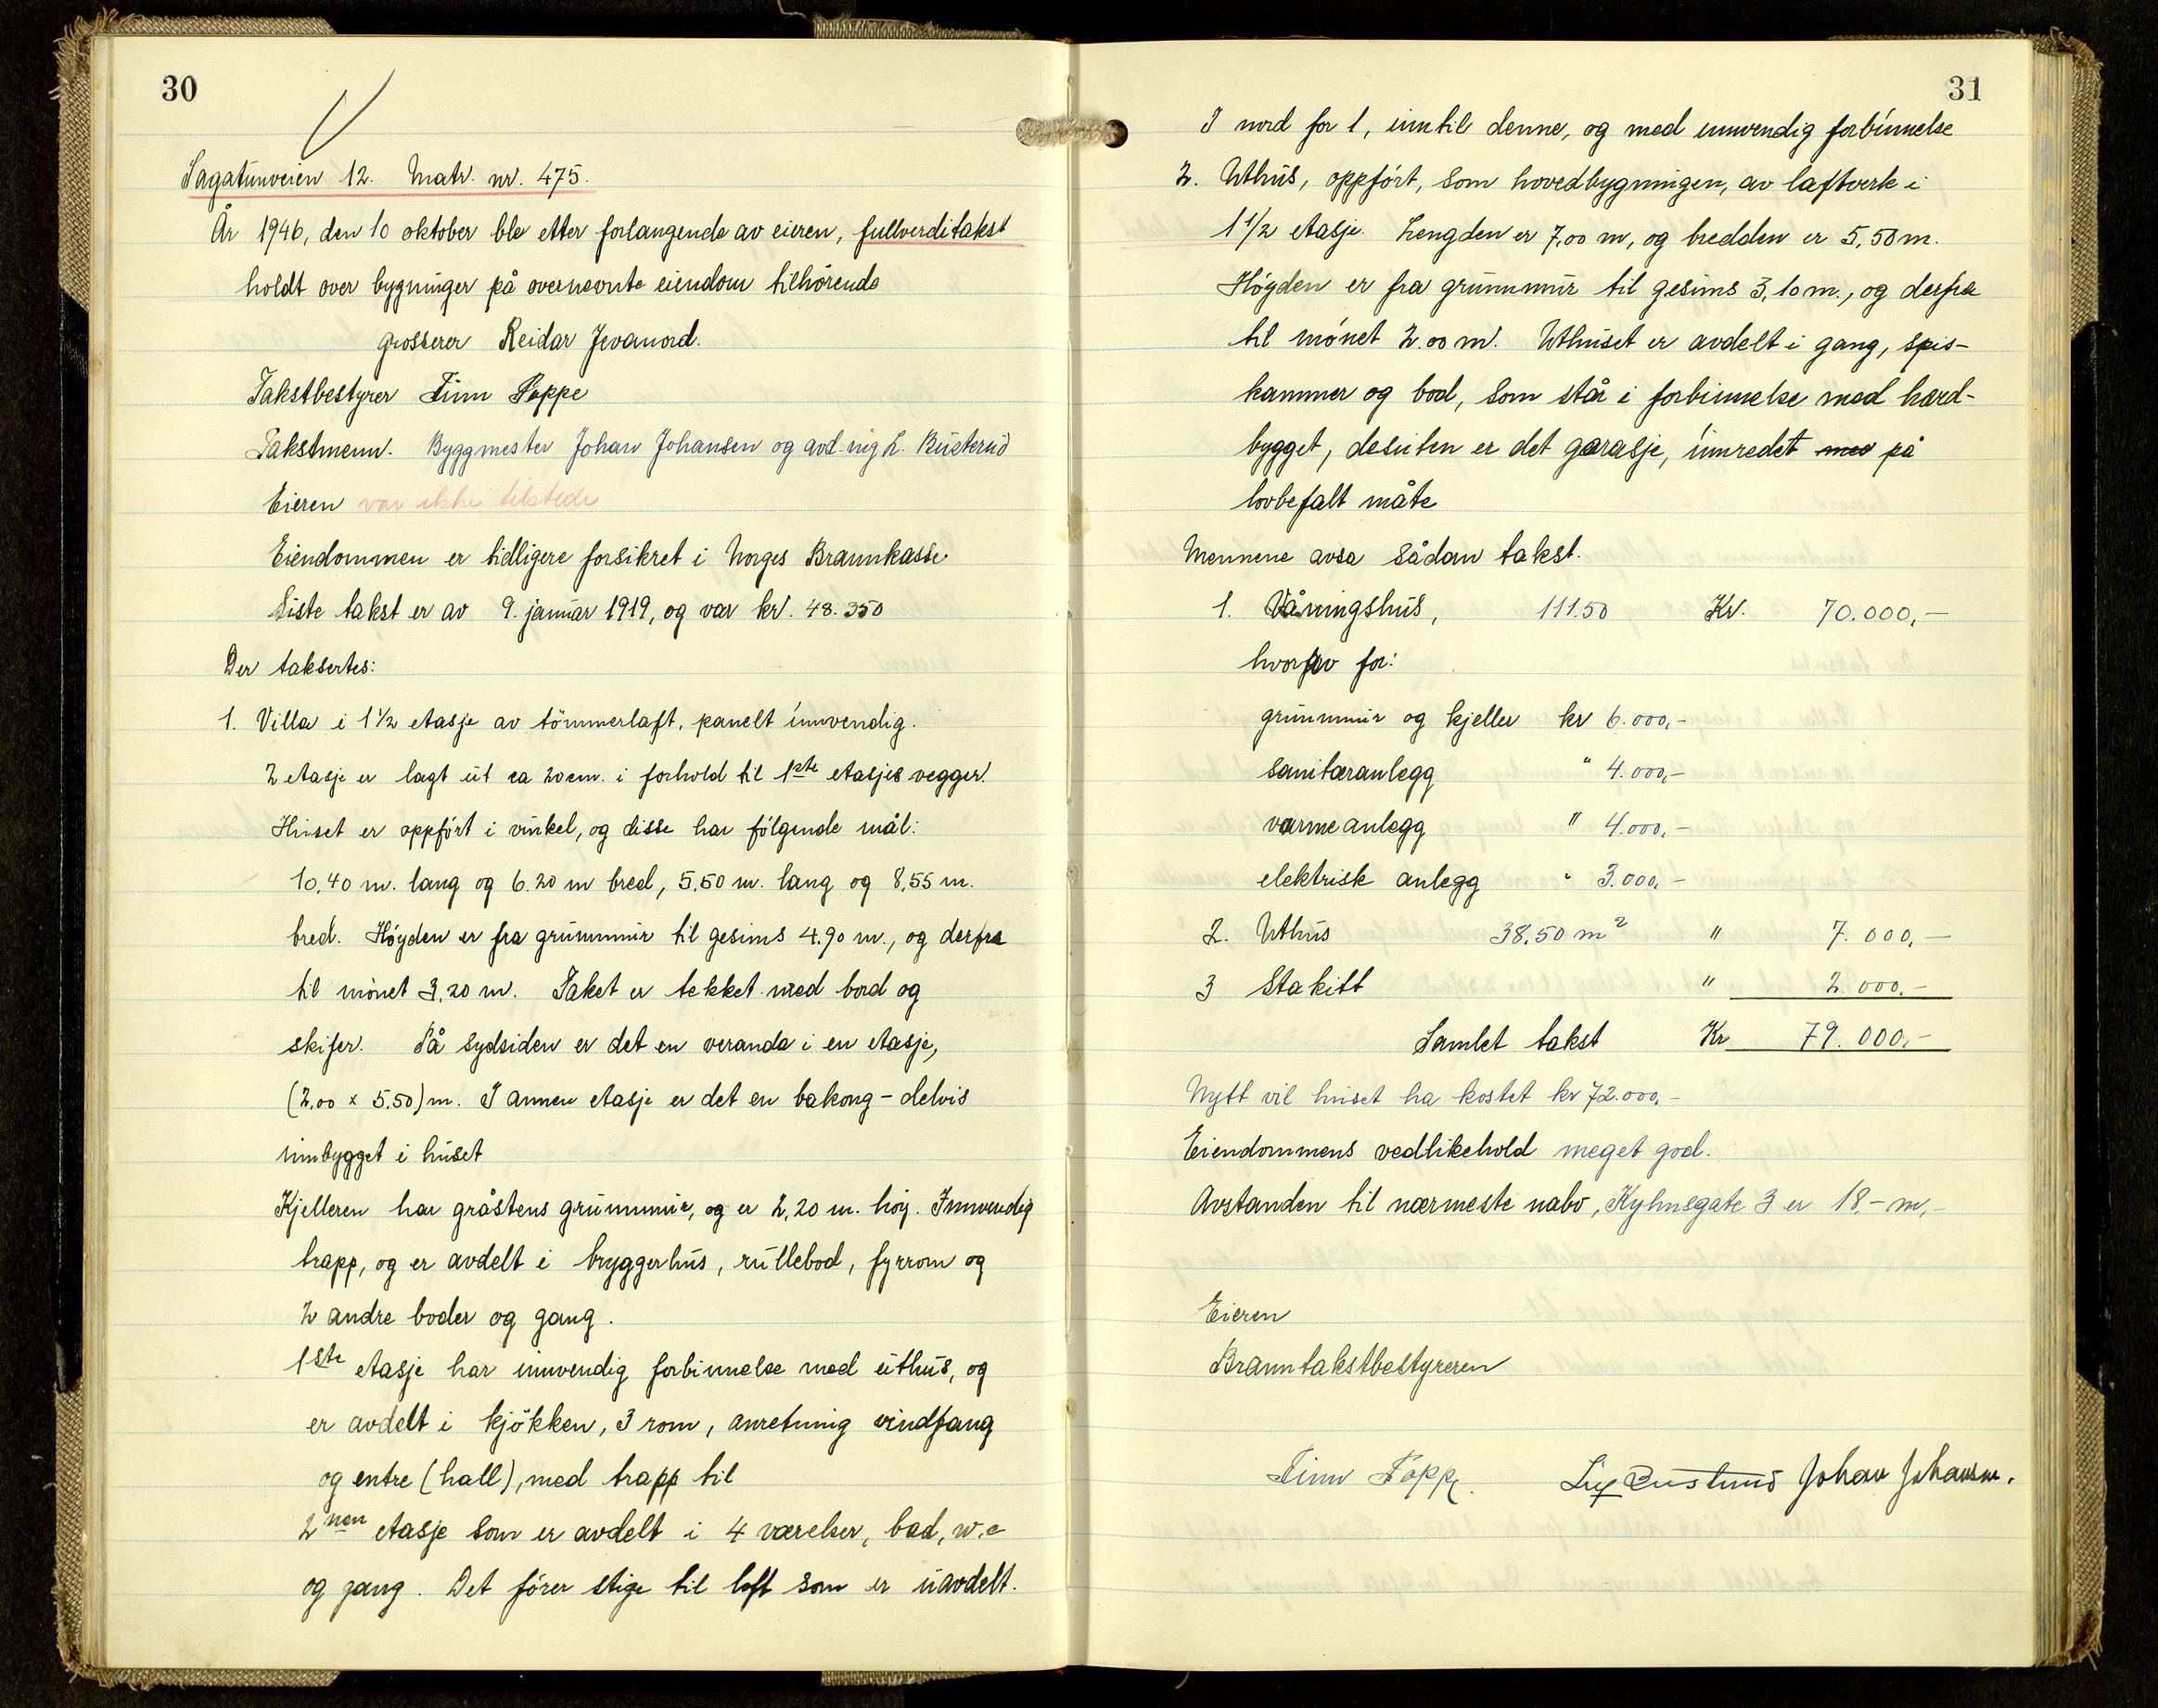 30
Sagatunveien 12. Matr. nr. 475.
År 1946, den 10 oktober ble etter forlangende av eieren, fullverditakst
holdt over bygninger på overnevnte eiendom tilhørende
grosserer Reidar Jevanord.
Takstbestyrer Finn Poppe
Takstmenn. Byggmester Johan Johansen og avd. ing L. Busterud
Eieren var ikke tilstede
Eiendommen er tidligere forsikret i Norges Brannkasse
Siste takst er av 9. januar 1919, og var kr. 48.350
Der taksertes:
1. Villa i 1 1/2 etasje av tömmerlaft, panelt innvendig.
2 etasje er lagt ut ca 20 cm. i forhold til 1ste etasjes vegger.
Huset er oppført i vinkel, og disse har følgende mål:
10,40 m. lang og 6.20 m bred, 5,50 m. lang og 8,55 m.
bred. Høyden er fra grunnmur til gesims 4.90 m., og derfra
til mønet 3,20 m. Taket er tekket med bord og
skifer. På sydsiden er det en veranda i en etasje,
(2,00 x 5,50) m. I annen etasje er det en bakong - delvis
innbygget i huset
Kjelleren har gråstens grunnmur, og er 2,20 m. høy. Innvendig
trapp, og er avdelt i bryggerhus, rullebod, fyrrom og
2 andre boder og gang.
1ste etasje har innvendig forbinnelse med uthus, og
er avdelt i kjökken, 3 rom, anretning vindfang
og entre (hall), med trapp til
2nen etasje som er avdelt i 4 værelser, bad, w.c
og gang. Det fører stige til loft som er uavdelt.
31
I nord for 1, inntil denne, og med innvendig forbinnelse
2. Uthus, oppført, som hovedbygningen, av laftverk i
1 1/2 etasje. Lengden er 7,00 m, og bredden er 5,50 m.
Høyden er fra grunnmur til gesims 3,10 m., og derfra
til mønet 2.00 m. Uthuset er avdelt i gang, spis-
kammer og bod, som står i forbinnelse med hoved-
bygget, desuten er det garasje, innredet med på
lovbefalt måte
Mennene avsa sådan takst.
1. Våningshus, 111.50 Kr. 70.000,-
hvorav for:
grunnmur og kjeller kr 6.000,-
sanitæranlegg " 4.000,-
varmeanlegg " 4.000,-
elektrisk anlegg " 3.000,-
2. Uthus 38,50 m2 " 7.000,-
3 Stakitt " 2.000,-
Samlet takst Kr 79.000,-
Nytt vil huset ha kostet kr 72.000,-
Eiendommens vedlikehold meget god.
Avstanden til nærmeste nabo, Kyhnsgate 3 er 18,- m,-
Eieren
Branntakstbestyreren
Finn Poppe. Johan Johansen.